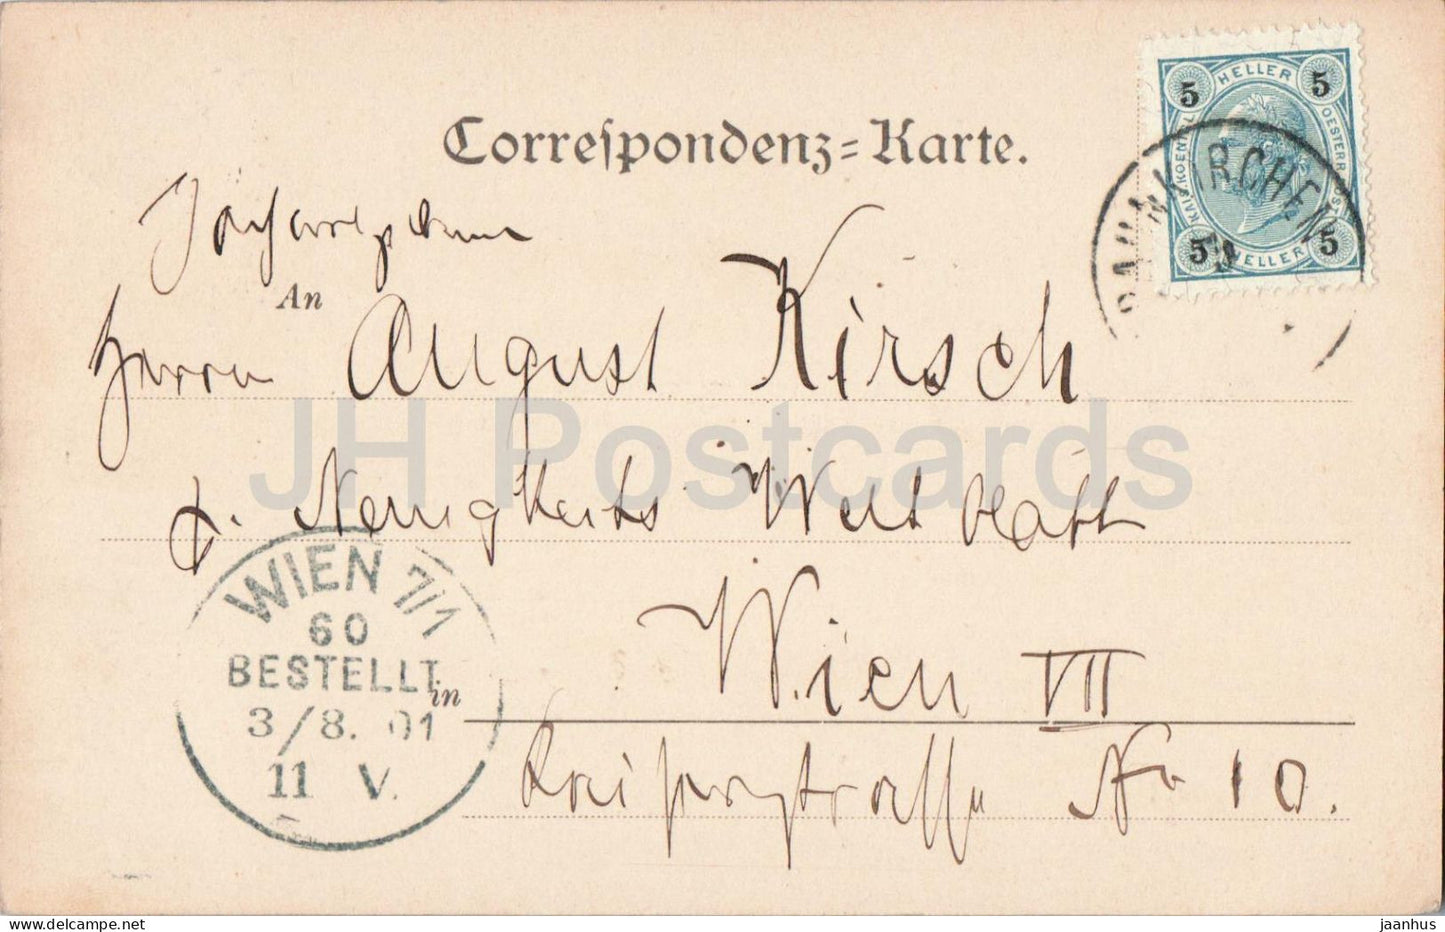 Correspondenz-Karte.
HELLER
5 5
KAIS. KOENIGL. OESTERR. POST
5 5
HELLER
An
Herrn August Kirsch
Neuigkeits Welt blatt
Wien VII
in
Kaiserstrasse No 10.
WIEN 7/1
60
BESTELLT
3/8. 01
11 V.
JH Postcards
jaanhus